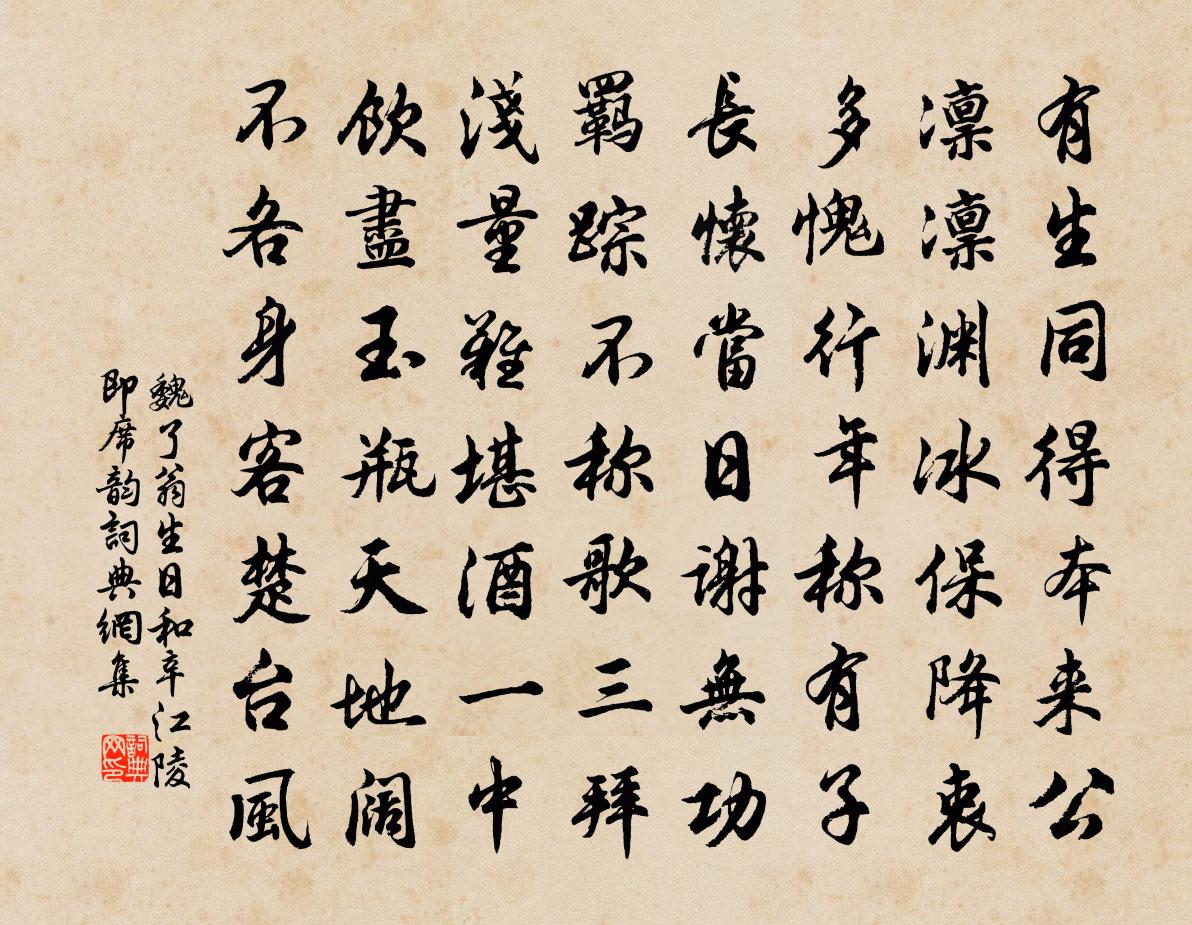 有生同得本来公
凛凛渊冰保降衷
多愧行年称有子
長懷當日謝無功
羈踪不称歌三拜
淺量難堪酒一中
飲盡玉瓶天地阔
不各身客楚台風
魏了翁生日和辛江陵
即席韵詞典網集
詞典
网印